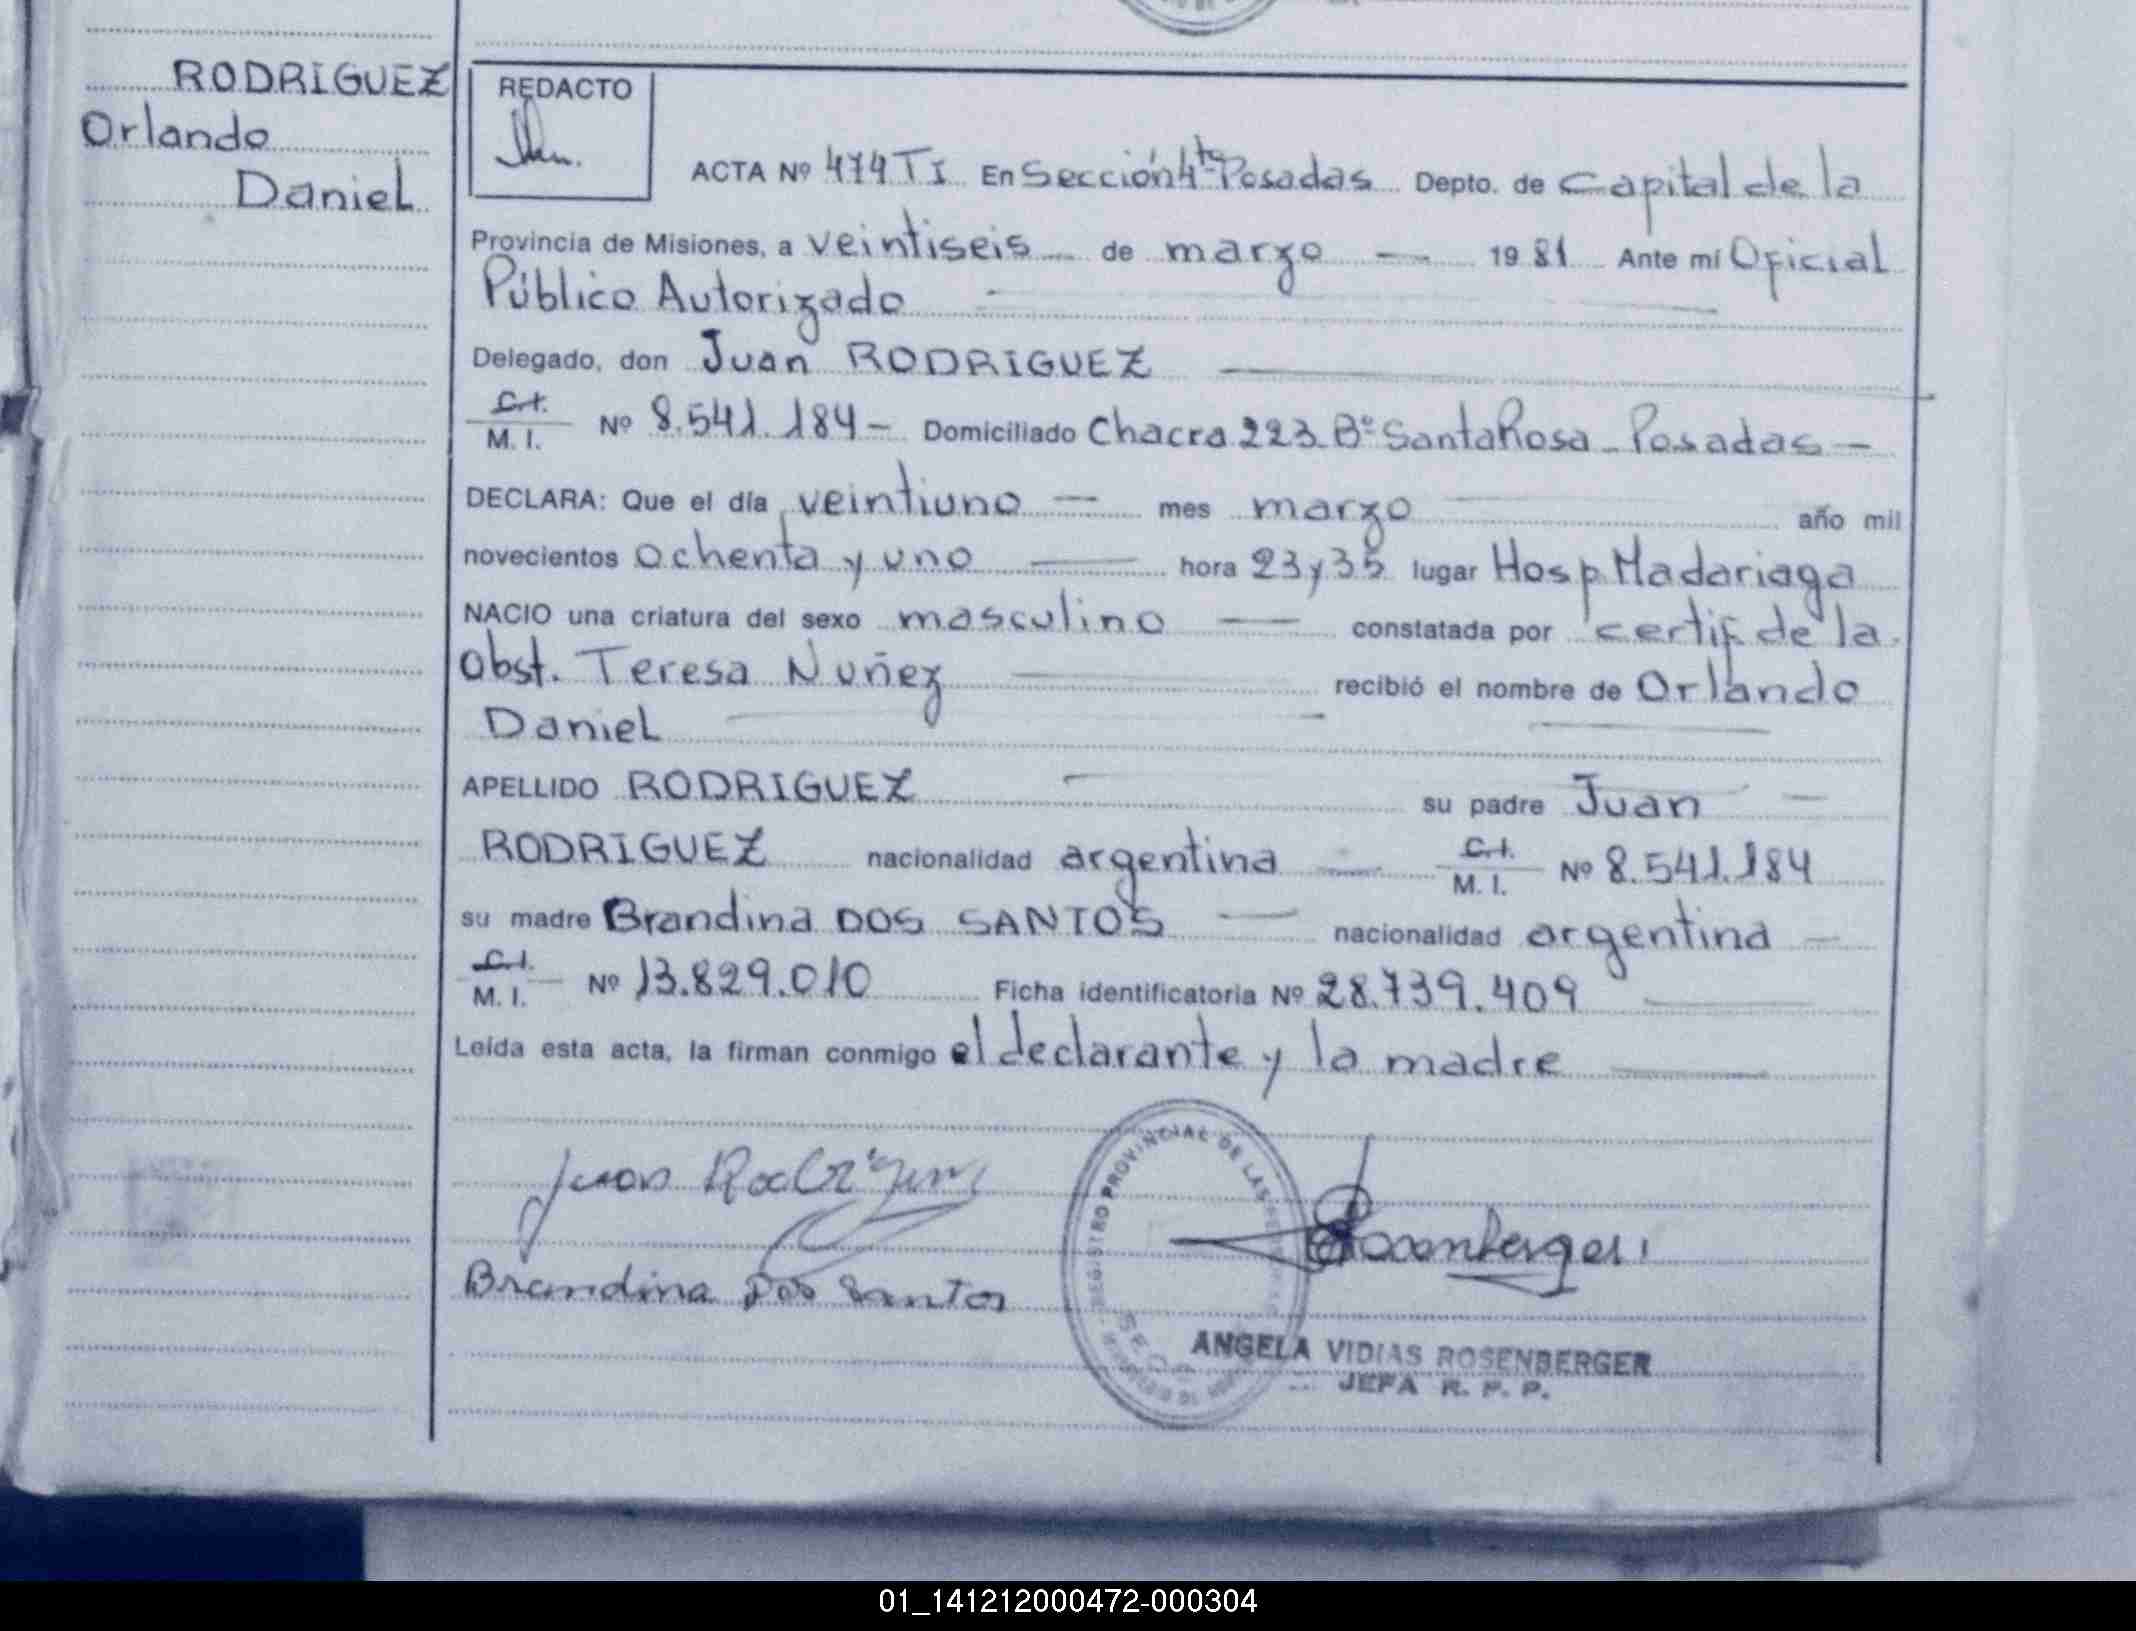 RODRIGUEZ
Orlando
Daniel
REDACTO
ACTA Nº 474 TI En Sección 4ta Posadas Depto. de Capital de la
Provincia de Misiones, a veintiseis de marzo 1981 Ante mí Oficial
Público Autorizado
Delegado, don Juan RODRIGUEZ
C.I.
M. I. Nº 8.541.184- Domiciliado Chacra 223 Bº Santa Rosa - Posadas -
DECLARA: Que el día veintiuno mes marzo año mil
novecientos ochenta y uno hora 23 y 35 lugar Hosp Madariaga
NACIO una criatura del sexo masculino constatada por certif de la
Obst. Teresa Nuñez recibió el nombre de Orlando
Daniel
APELLIDO RODRIGUEZ su padre Juan
RODRIGUEZ nacionalidad argentina C.I. M. I. Nº 8.541.184
su madre Brandina DOS SANTOS nacionalidad argentina
C.I.
M. I. Nº 13.829.010 Ficha identificatoria Nº 28.739.409
Leída esta acta, la firman conmigo el declarante y la madre
Juan Rodriguez
Brandina Dos Santos
REGISTRO PROVINCIAL DE LAS
Rosenberger
ANGELA VIDIAS ROSENBERGER
JEFA R. P. P.
01_141212000472-000304